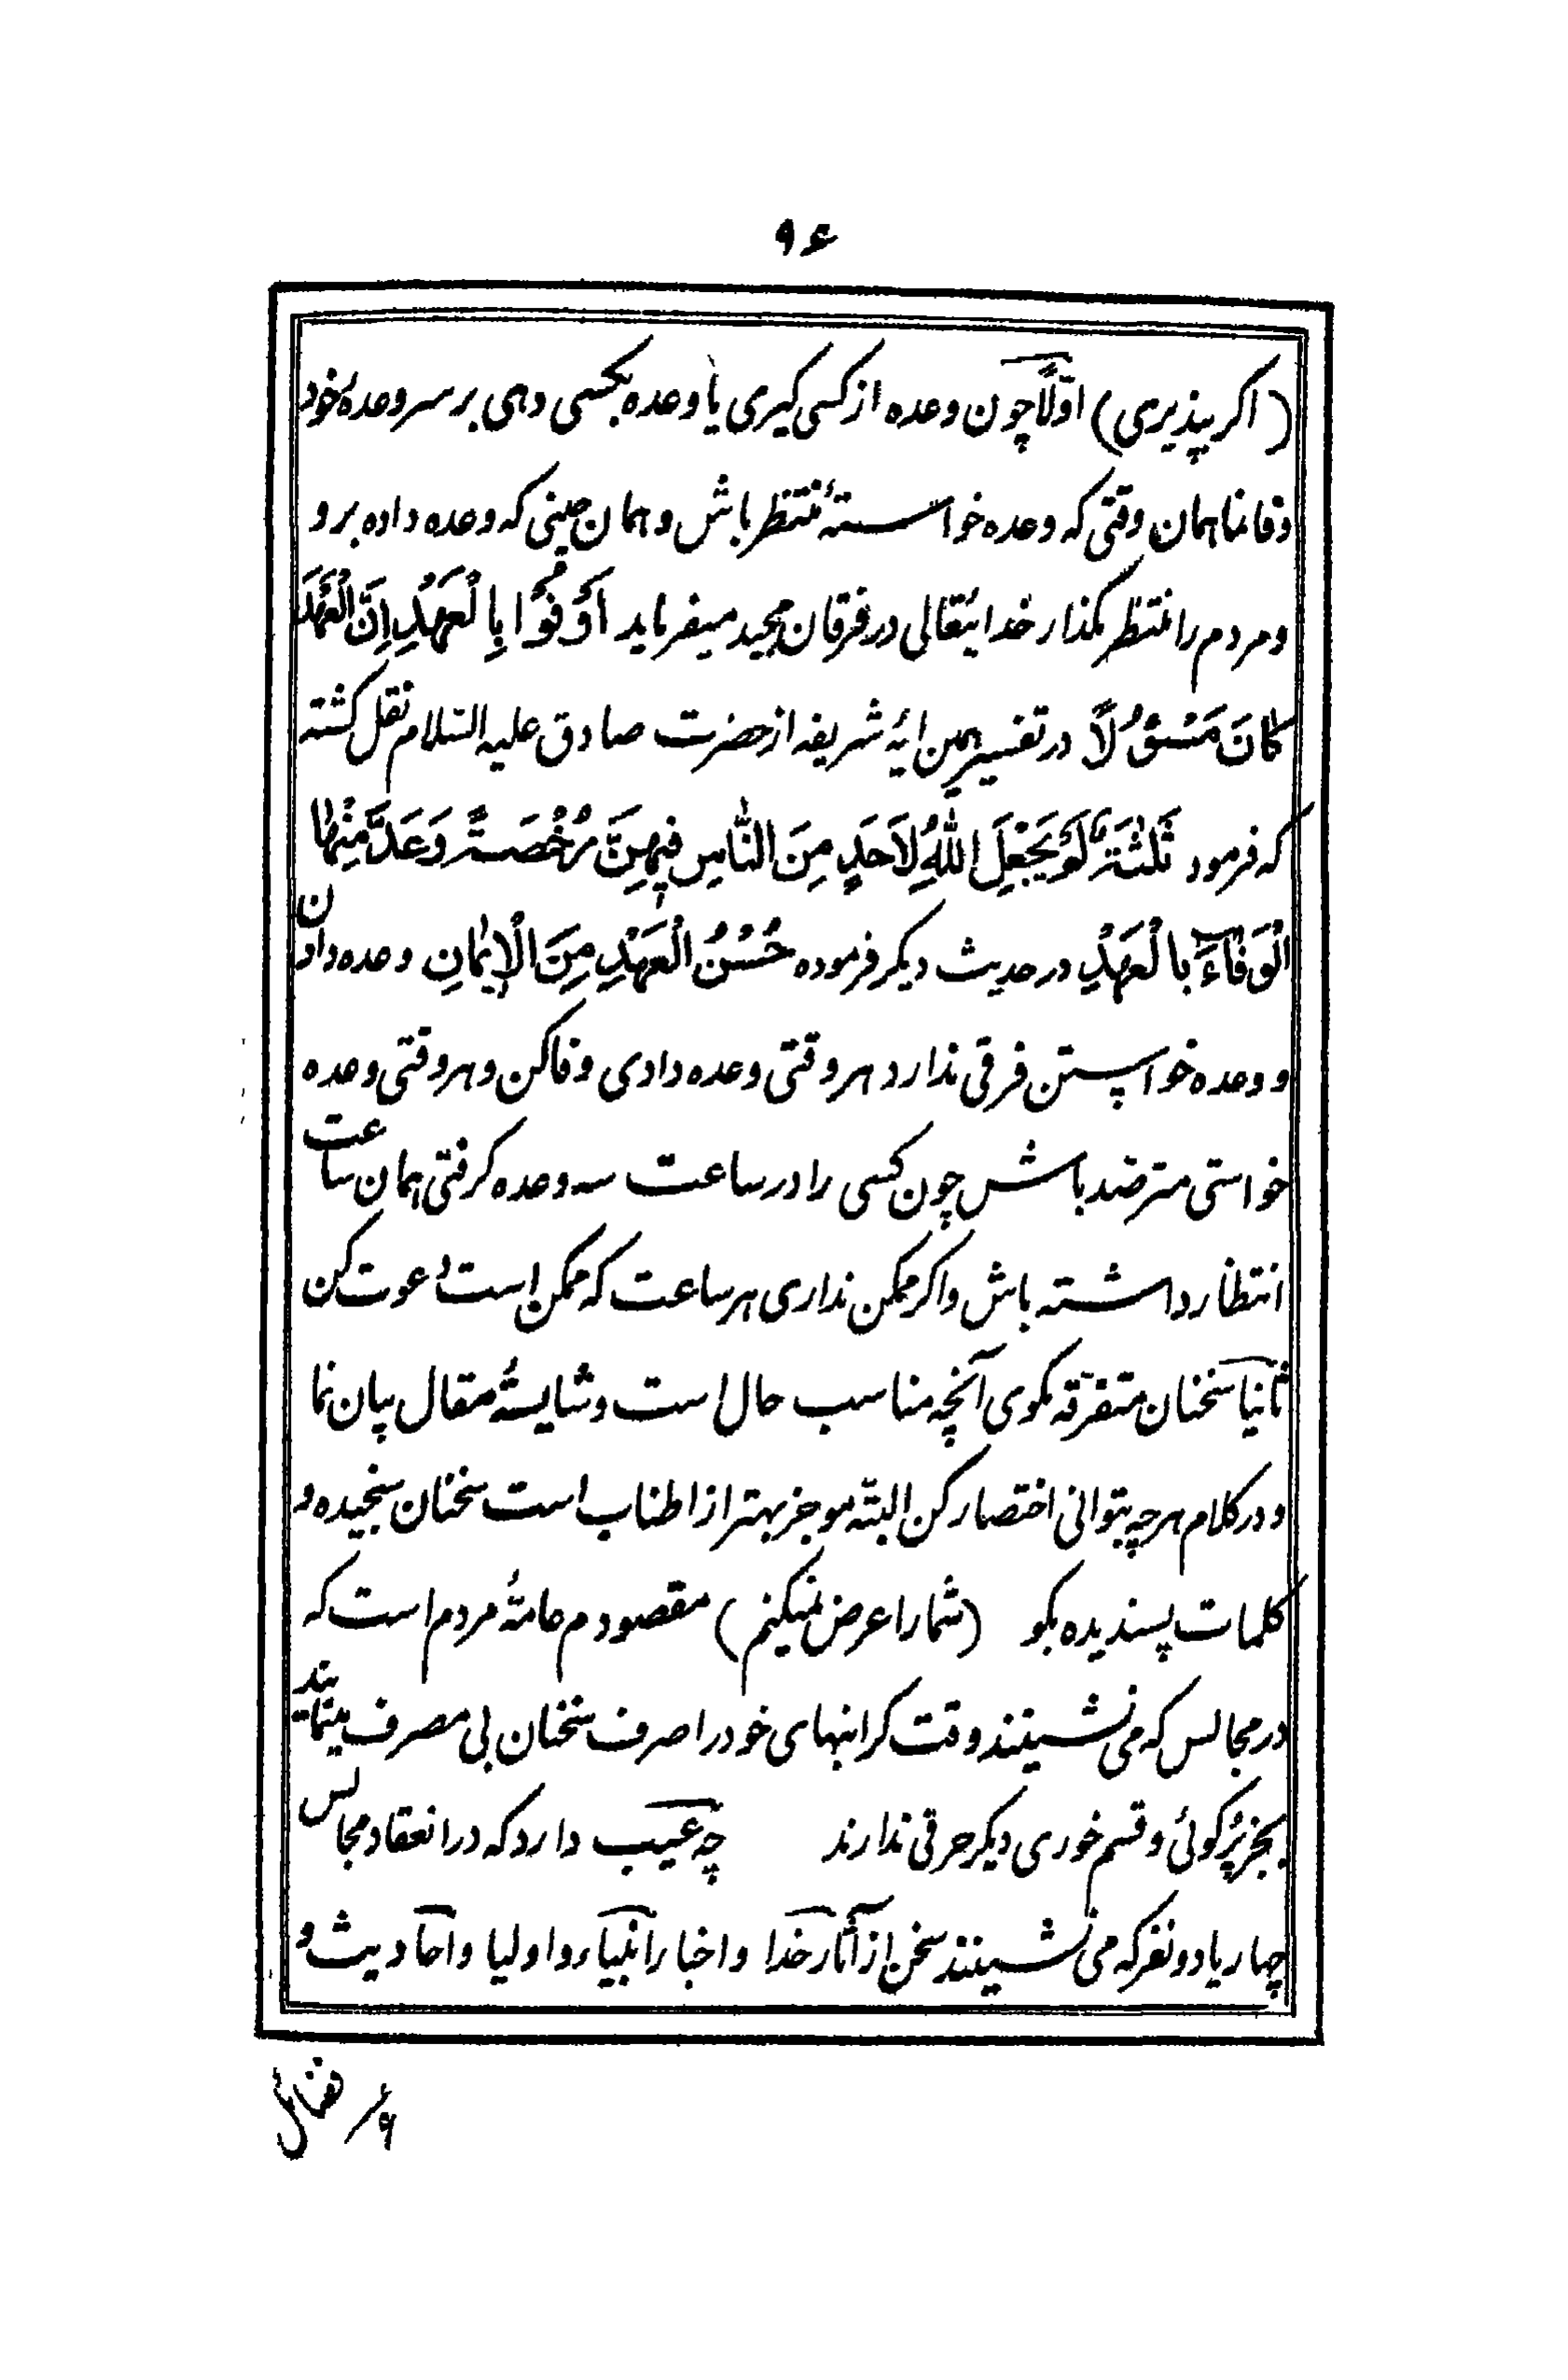 ۹۶
(اکر بپذیری) اوّلاً چون وعده از کسی کیری یا وعده بکسی دهی بر سر وعدهٔ خود
وفا نما همان وقتی که وعده خواستهٔ منتظر باش و همان حینی که وعده داده برو
و مردم را منتظر مکذار خدایتعالی در فرقان مجید میفرماید اَوْفُوْا بِالْعَهْدِ اِنَّ الْعَهْدَ
کٰانَ مَسْئُولًا در تفسیر همین ایهٔ شریفه از حضرت صادق علیه السّلام نقل کشته
که فرمود ثَلٰثَةٌ لَمْ یَجْعَلِ اللّٰهُ لِاَحَدٍ مِنَ النّٰاسِ فِیهِنَّ رُخْصَةً وَعَدَّ مِنْهٰا
الْوَفٰاءَ بِالْعَهْدِ در حدیث دیکر فرموده حُسْنُ الْعَهْدِ مِنَ الْاِیمٰانِ وعده دادن
و وعده خواستن فرقی ندارد هر وقتی وعده دادی وفا کن و هر وقتی وعده
خواستی مترصد باش چون کسی را در ساعت سه وعده کرفتی همان ساعت
انتظار داشته باش و اکر ممکن نداری هر ساعت که ممکن است دعوت کن
ثانیا سخنان متفرّقه مکوی آنچه مناسب حال است و شایستهٔ مقال بیان نما
و در کلام هر چه بتوانی اختصار کن البتّه موجز بهتر از اطناب است سخنان سنجیده و
کلمات پسندیده بکو (شما را عرض نمیکنم) مقصودم عامّهٔ مردم است که
در مجالس که می نشینند وقت کرانبهای خود را صرف سخنان بی مصرف مینمایند
بجز پُرکوئی و قسم خوری دیکر حرفی ندارند چه عیب دارد که در انعقاد مجالس
چهار یا دو نفر که می نشینند سخن از آثار خدا و اخبار انبیاء و اولیا و احادیث و
۶/ فضائل